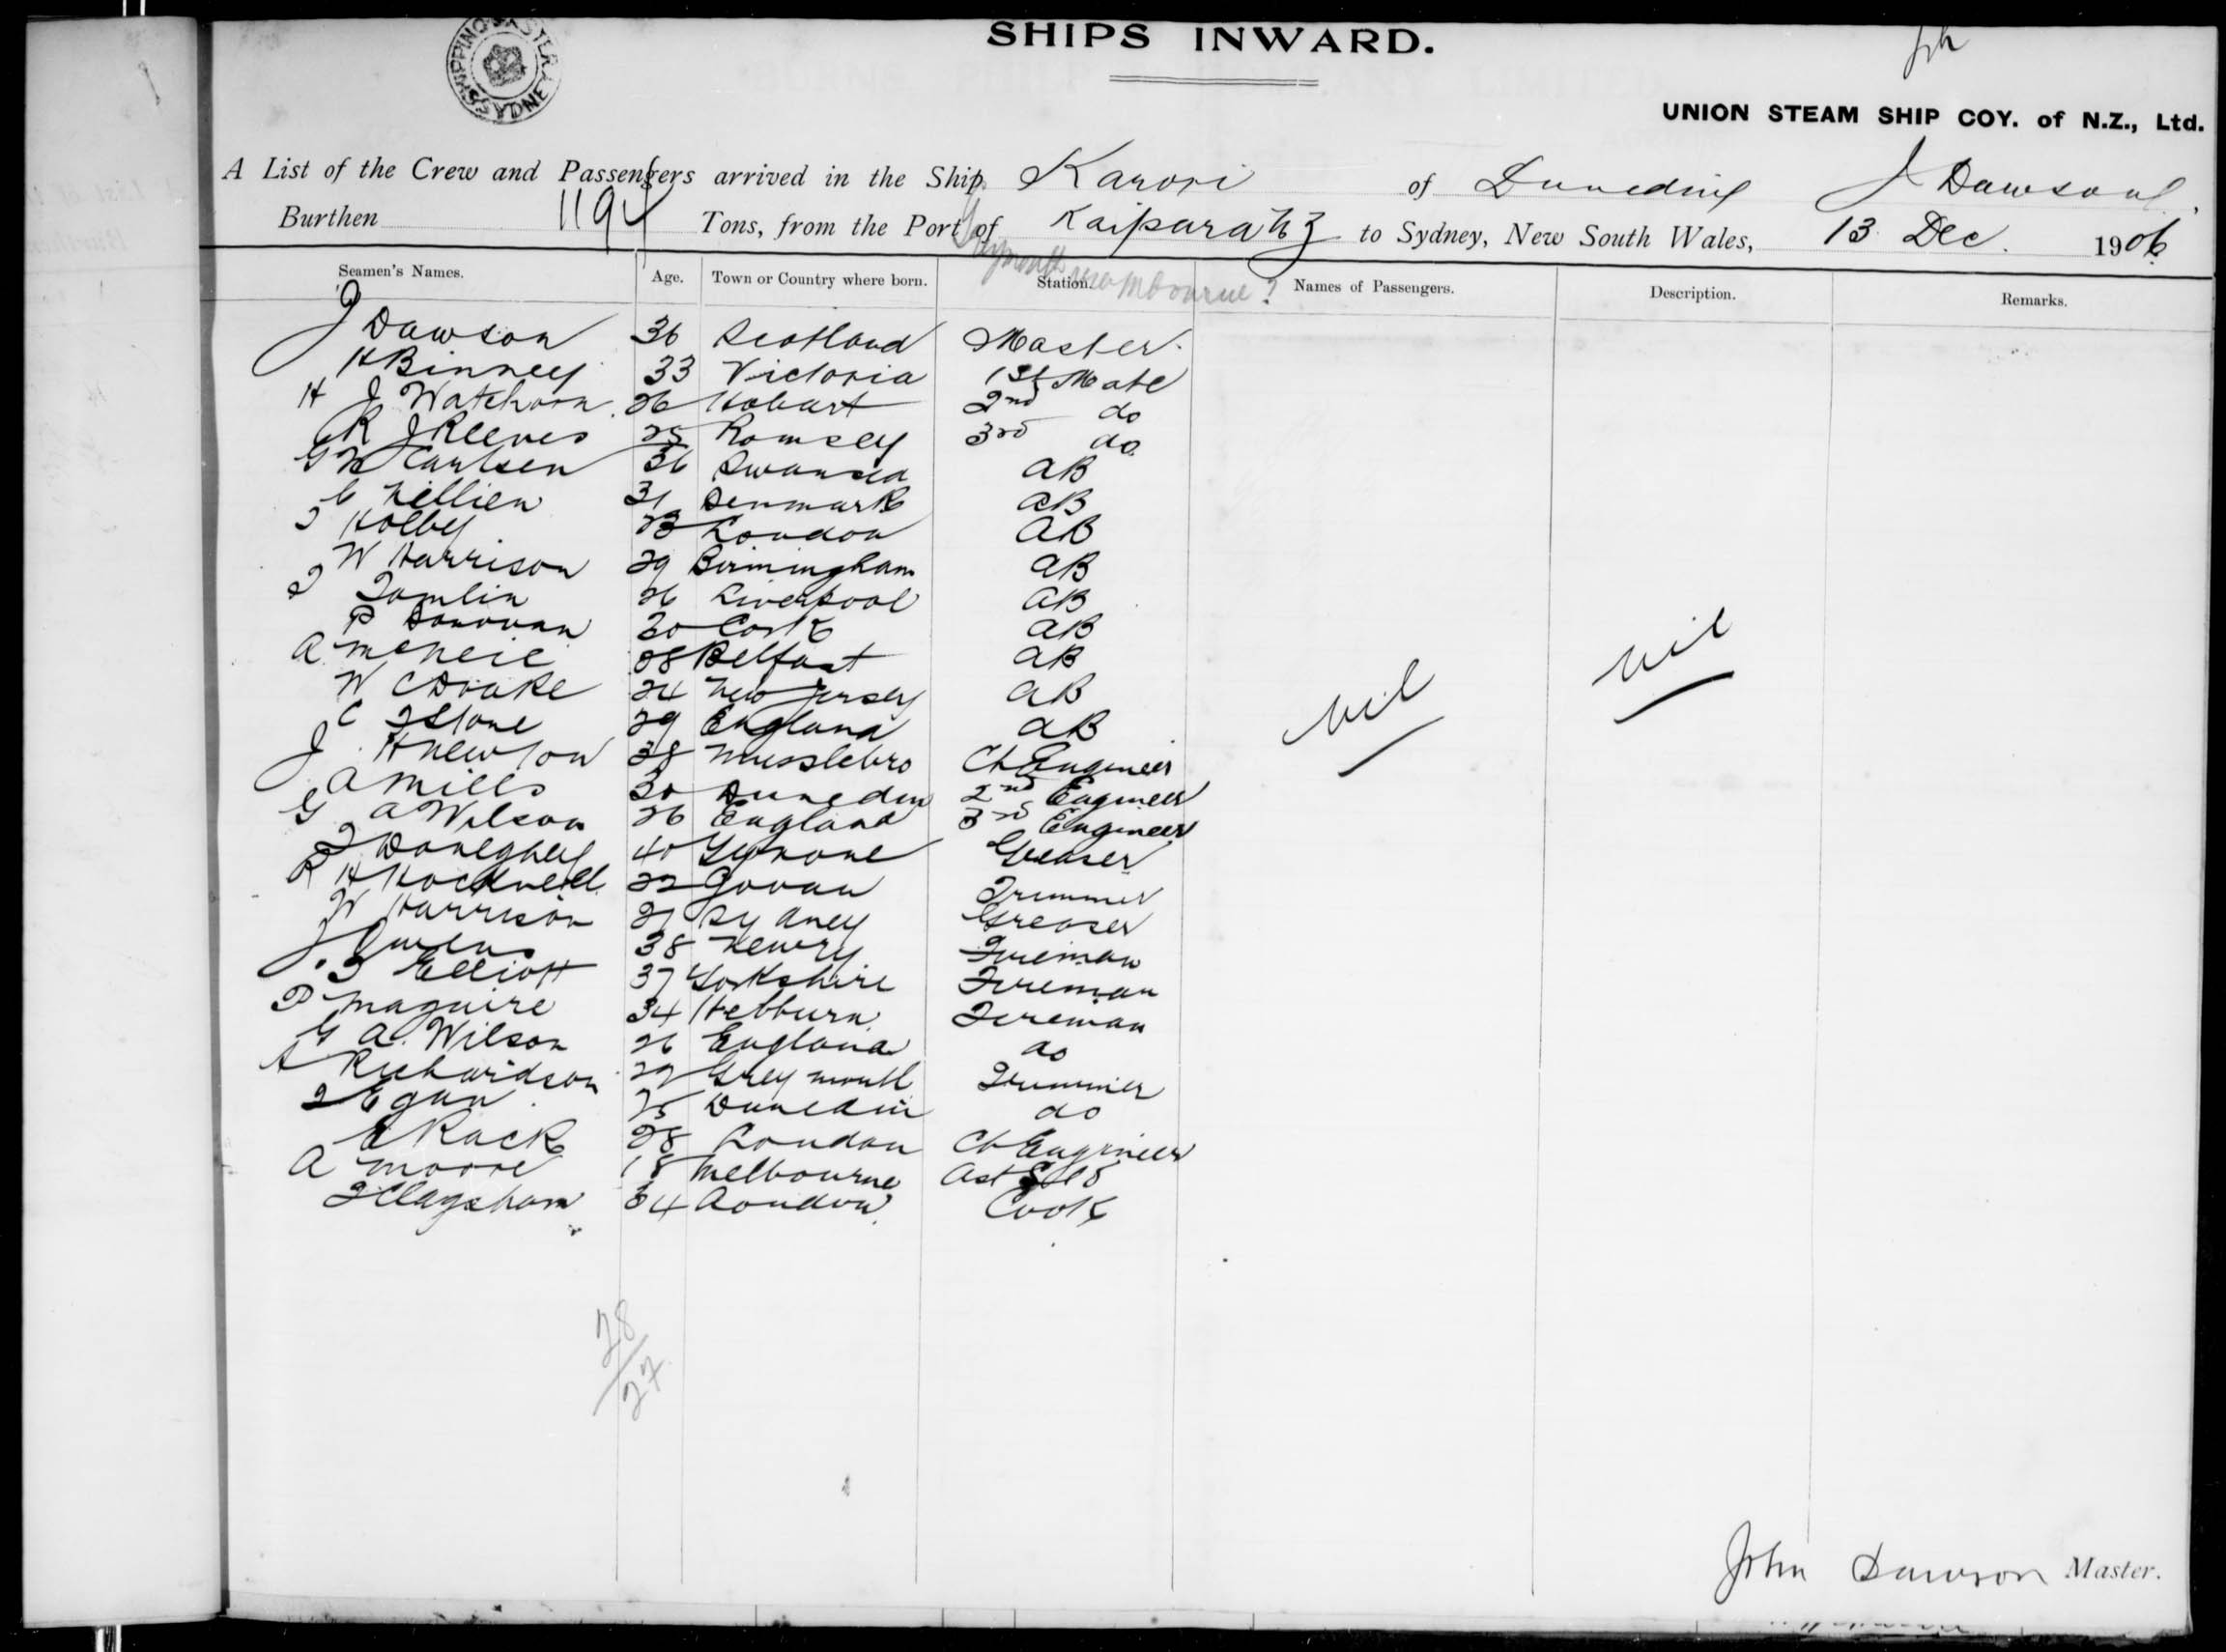 SHIPS INWARD.
SHIPPING MASTER SYDNEY
UNION STEAM SHIP COY. of N.Z., Ltd.
A List of the Crew and Passengers arrived in the Ship Karori of Dunedin J Dawson
Burthen 1194 Tons, from the Port of Kaipara NZ to Sydney, New South Wales, 13 Dec. 1906
Seamen's Names. Age. Town or Country where born. Station. Names of Passengers. Description. Remarks.
J Dawson 36 Scotland Master
H Binney 33 Victoria 1st Mate
H J Watchorn 26 Hobart 2nd do
R J Reeves 25 Romsey 3rd do
G W Carlsen 36 Swansea AB
C Nellien 31 Denmark AB
T Holby 23 London AB
W Harrison 29 Birmingham AB
T Tomlin 26 Liverpool AB
P Donovan 20 Cork AB
A McNeil 28 Belfast AB
W C Drake 24 New Jersey AB
C T Stone 29 England AB
J H Newton 38 Musslebro Ch Engineer
A Mills 30 Dunedin 2nd Engineer
G A Wilson 26 England 3rd Engineer
T Doneghey 40 Tyrone Greaser
R H 22 Govan Trimmer
W Harrison 21 Sydney Greaser
J Owens 38 Newry Fireman
T Elliott 37 Yorkshire Fireman
P Maguire 34 Hebburn Fireman
G A Wilson 26 England do
A Richardson 22 Greymouth Trimmer
T Egan 25 Dunedin do
E Rack 28 London Ch Engineer
A Moore 18 Melbourne Ast
T Clagsham 34 London Cook
nil nil
28
27
John Dawson Master.